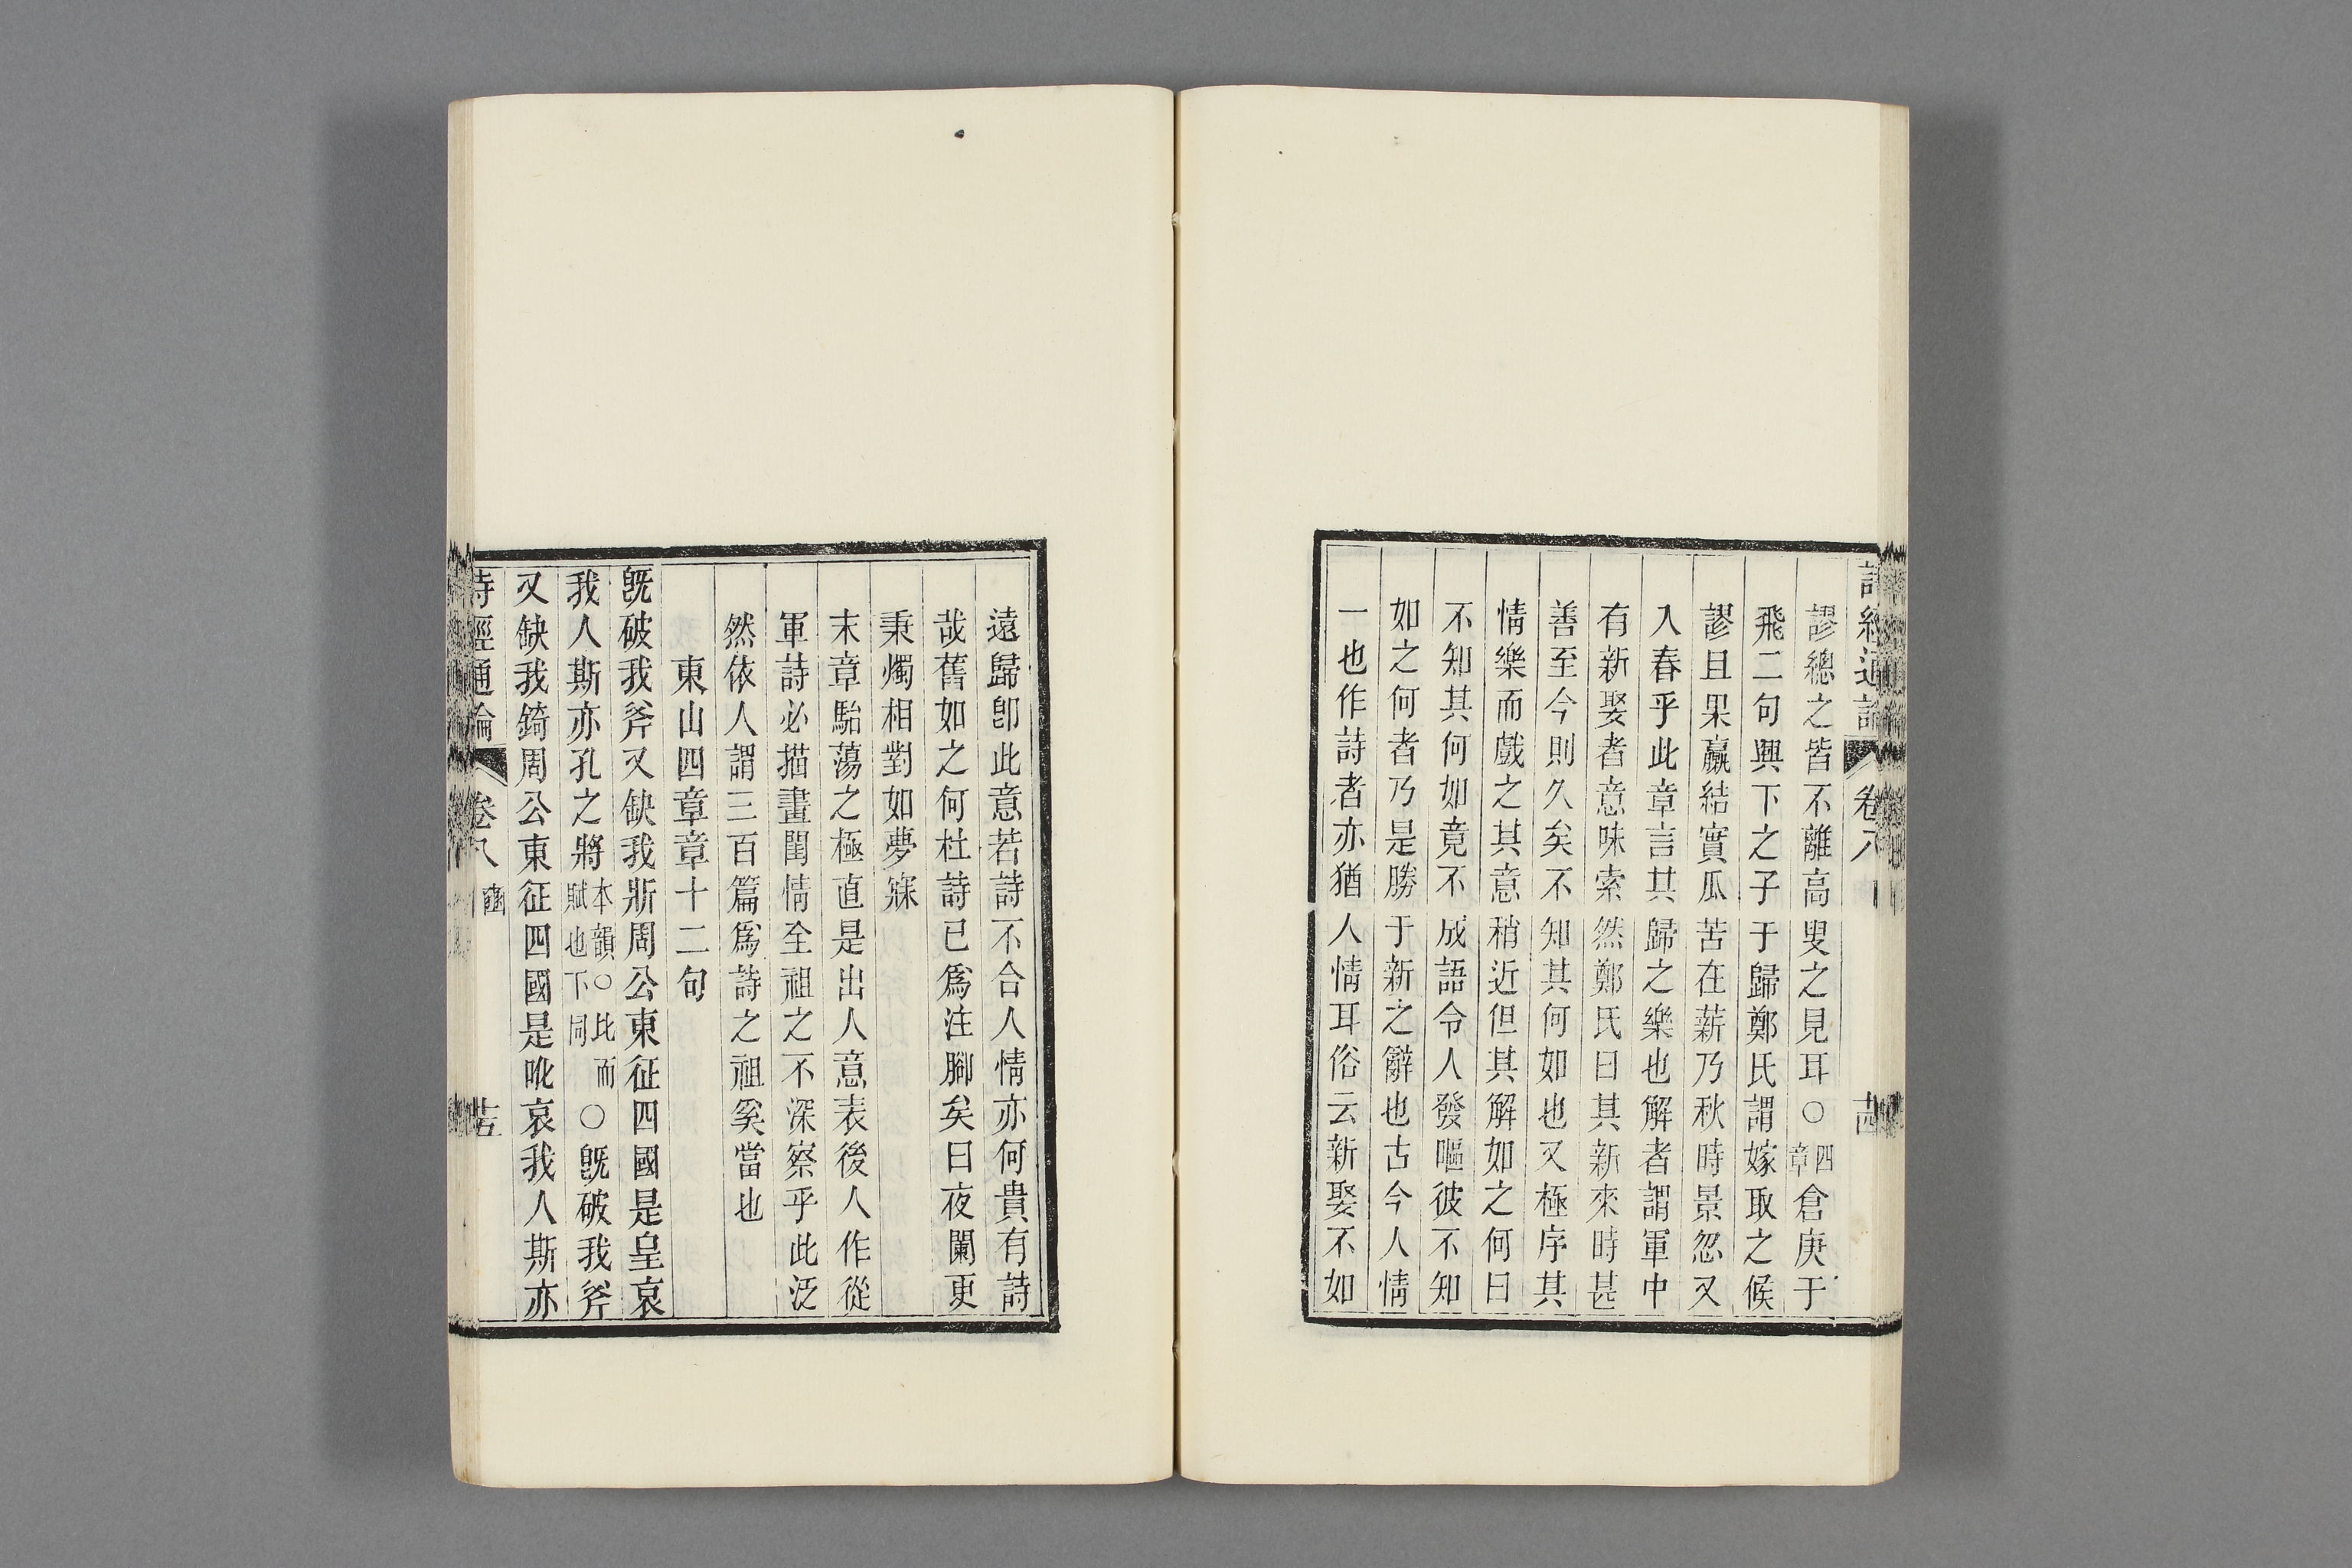 詩經通論 卷八 十四
謬總之皆不離高叟之見耳○四章倉庚于
飛二句興下之子于歸鄭氏謂嫁取之候
謬且果臝結實瓜苦在薪乃秋時景忽又
入春乎此章言其歸之樂也解者謂軍中
有新娶者意味索然鄭氏曰其新來時甚
善至今則久矣不知其何如也又極序其
情樂而戲之其意稍近但其解如之何曰
不知其何如竟不成語令人發嘔彼不知
如之何者乃是勝于新之辭也古今人情
一也作詩者亦猶人情耳俗云新娶不如
遠歸卽此意若詩不合人情亦何貴有詩
哉舊如之何杜詩已爲注腳矣曰夜闌更
秉燭相對如夢寐
末章駘蕩之極直是出人意表後人作從
軍詩必描畫閨情全祖之不深察乎此泛
然依人謂三百篇爲詩之祖奚當也
東山四章章十二句
旣破我斧又缺我斨周公東征四國是皇哀
我人斯亦孔之將本韻○比而賦也下同○旣破我斧
又缺我錡周公東征四國是吪哀我人斯亦
詩經通論 卷八 豳 十五